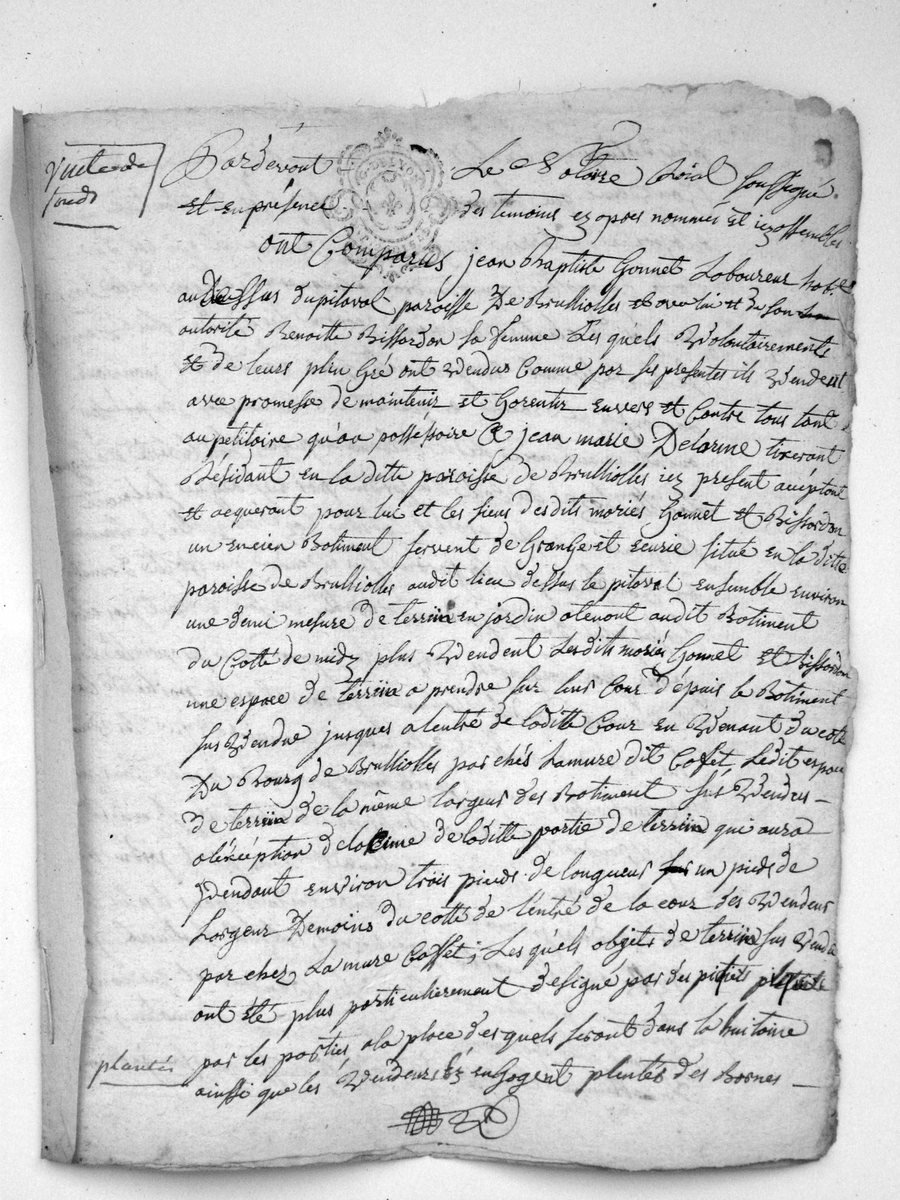 Vente de
fonds
Pardevant Le Notaire Roial soussigné
et en présence des temoins cy apres nommés et icy assemblés
ont Comparus jean Baptiste Gonnet Laboureur hab.
au Dessus du pitaval paroisse De Brulliolles et avec lui et de son
autorité Benoitte Bissordon sa femme Les quels Volontairements
et de leurs plein Gré ont Vendus Comme par ses presentes ils Vendent
avec promesse de maintenir et Garentir Envers et Contre tous tant
au petitoire qu'au posséssoire a jean marie Delorme tixerant
Résidant en la ditte paroisse de Brulliolles icy present accéptant
et acquerant pour lui et les siens desdits mariés Gonnet et Bissordon
un encien Batiment servent de Grange et Ecurie situé en la ditte
paroisse de Brulliolles audit lieu dessus le pitaval ensemble environ
une demi mesure de terrein en jardin atenant audit Batiment
du Cotté de midy plus Vendent Lesdits mariés Gonnet et Bissordon
une espace de terrein a prendre sur leur Cour dépuis le Batiment
sus Vendue jusques a lentré de laditte Cour en Venant du coté
Du Bourg de Brulliolles par chés Lamure dit Caset, Ledit espace
de terrein de la même largeur des Batiment sus Vendus
a léxcéption de la Cime de laditte partie de terrein qui aura
pendant environ trois pieds de longueur un pieds de
Largeur Demoins du cotté de l'entré de la cour des Vendeurs
par chez La mure Casset; Les quels objets de terrein sus Vendu
ont été plus particulierement designé par des piquets
par les parties a la place desquels seront dans la huitaine
ainssi que les Vendeurs sy engagent plentés des Bornes
plantés